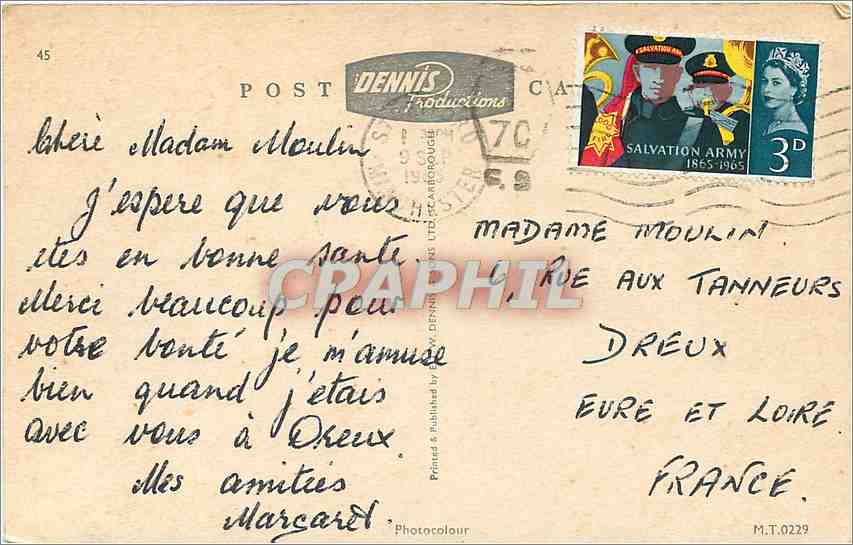 45
POST CA
DENNIS
Productions
SALVATION ARMY
SALVATION ARMY
1865-1965
3D
70
S. B
Chère Madam Moulin
J'espere que vous
etes en bonne sante.
Merci beaucoup pour
votre bonté je m'amuse
bien quand j'etais
avec vous à Dreux.
Mes amitiés
Margaret.
MADAME MOULIN
6, RUE AUX TANNEURS
DREUX
EURE ET LOIRE
FRANCE.
Printed & Published by E.T.W. DENNIS & SONS LTD., SCARBOROUGH
CRAPHIL
Photocolour
M.T.0229